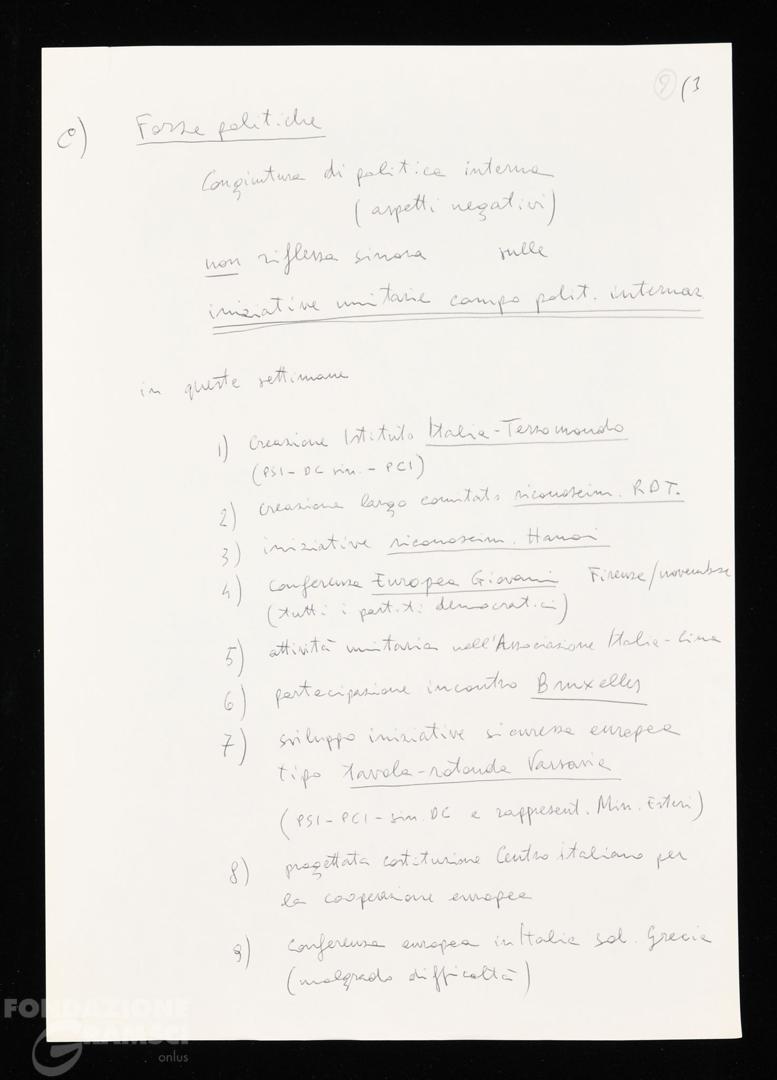 9 (3
c) Forze politiche
Congiuntura di politica interna
(aspetti negativi)
non riflessa sinora sulle
iniziative unitarie campo polit. internaz
in queste settimane
1) creazione Istituto Italia-Terzo mondo
(PSI - DC sin. - PCI)
2) creazione largo comitato riconoscim. RDT.
3) iniziative riconoscim. Hanoi
4) conferenza Europea Giovani Firenze/novembre
(tutti i partiti democratici)
5) attività unitaria nell'Associazione Italia-Cina
6) partecipazione incontro Bruxelles
7) sviluppo iniziative sicurezza europea
tipo tavola-rotonda Varsavia
(PSI - PCI - sin. DC e rappresent. Min. Esteri)
8) progettata costituzione Centro italiano per
la cooperazione europea
9) conferenza europea in Italia sol. Grecia
(malgrado difficoltà)
FONDAZIONE
GRAMSCI
onlus